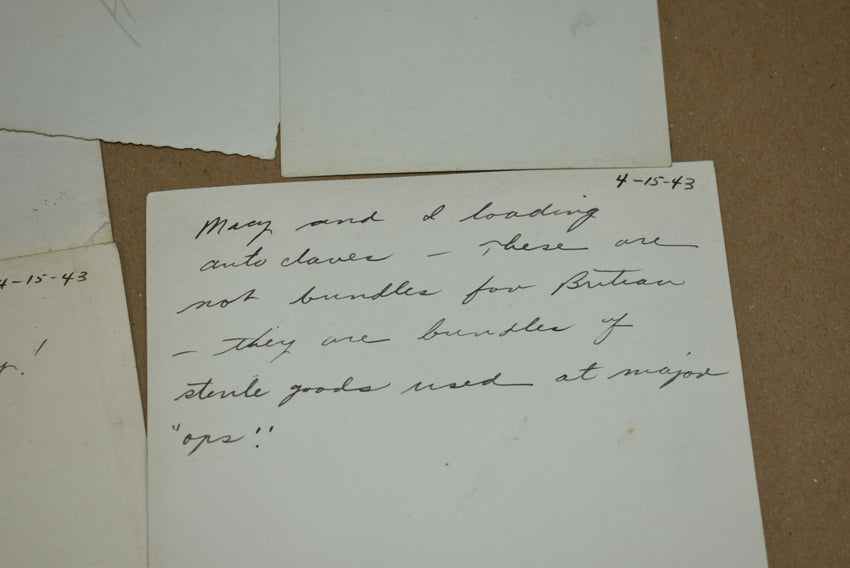 4-15-43
Macy and I loading
autoclaves - These are
not bundles for Britian
- they are bundles of
sterile goods used at major
"ops"!
4-15-43
!